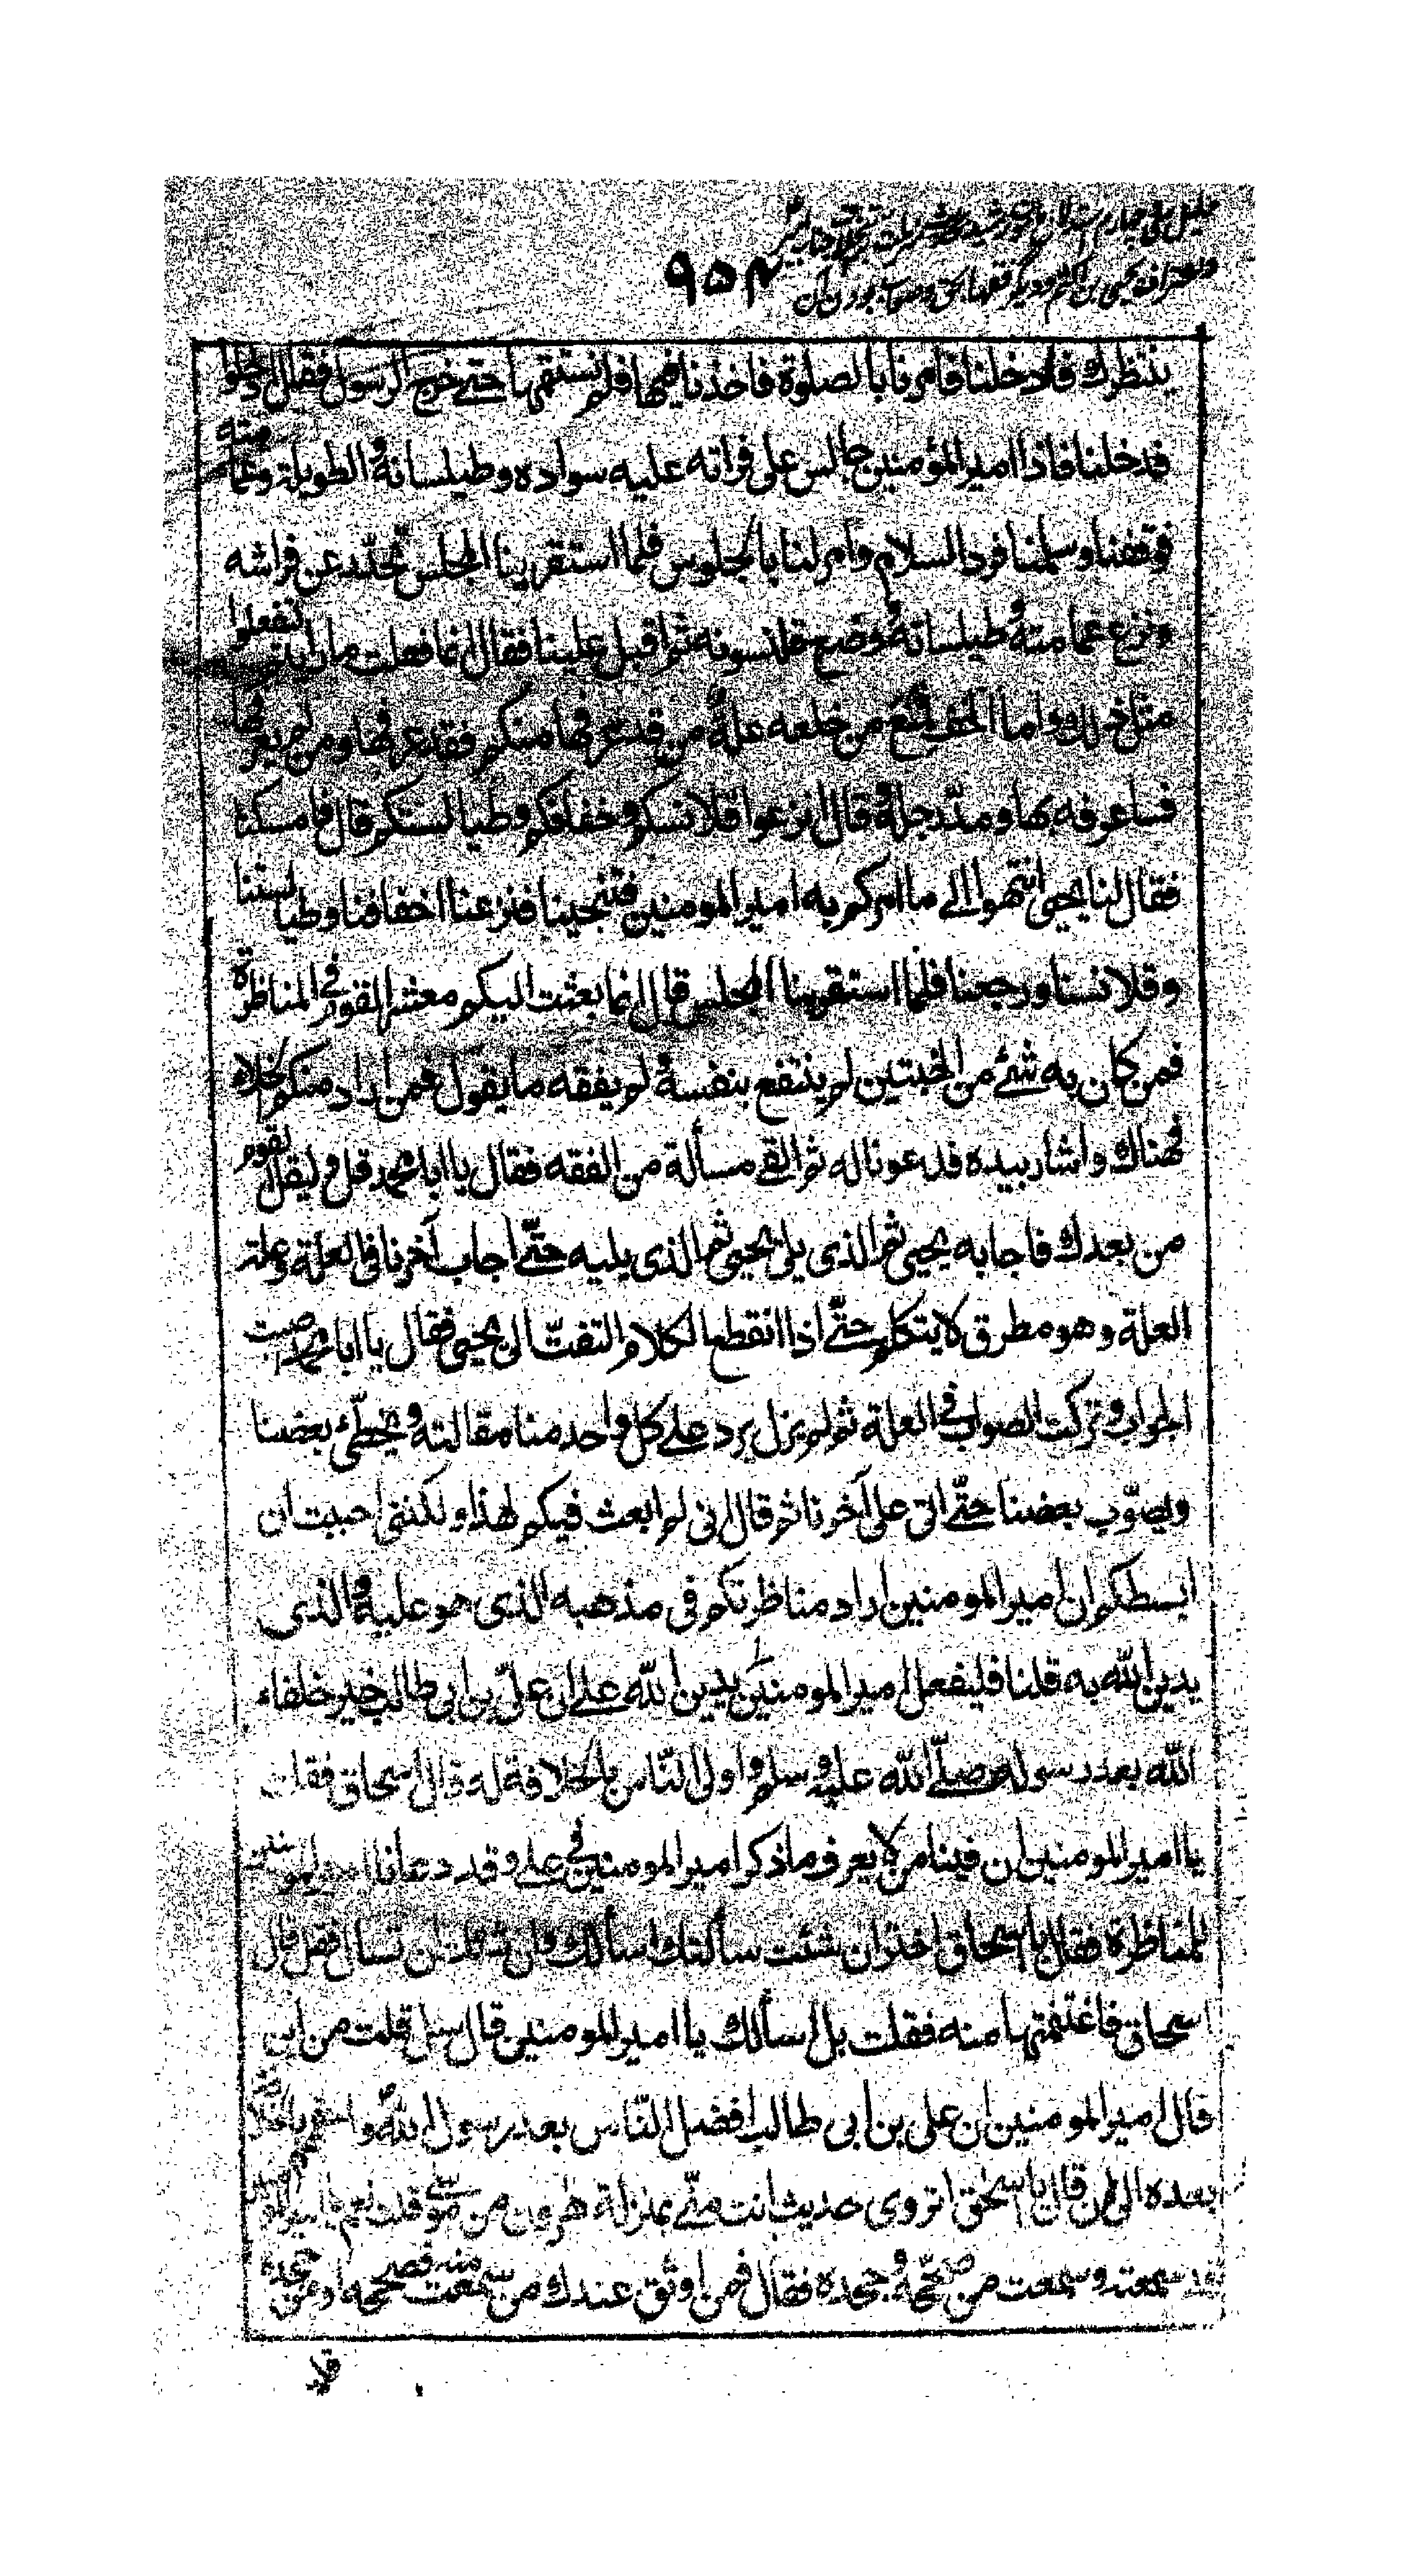 ۹۵۴
ينتظرك فادخلنا فامرنا بالصلوة فاخذنا فيها فلم نستتمها حتى خرج الرسول فقال ادخلوا
فدخلنا فاذا امير المؤمنين جالس على فراشه عليه سواده وطيلسانه والطويلة وعمامته
فوقفنا وسلمنا فرد السلام وأمر لنا بالجلوس فلما استقر بنا المجلس تحدّد عن فراشه
ونزع عمامته وطيلسانه ووضع قلنسوته ثم اقبل علينا فقال انما فعلت ما رايتم لتفعلوا
مثل ذلك واما الخف فمنع من خلعه علة من قد عرفها منكم فقد عرفها ومن لم يعرفها
فساعرفه بها ومدّ رجله وقال انزعوا قلانسكم وخفافكم وطيالستكم قال فامسكنا
فقال لنا يحيى انتهوا الى ما امركم به امير المومنين فتنحينا فنزعنا اخفافنا وطيالستنا
وقلانسنا ورجعنا فلما استقر بنا المجلس قال انما بعثت اليكم معشر القوم في المناظرة
فمن كان به شئ من الخبثين لم ينتفع بنفسه ولم يفقه ما يقول فمن اراد منكم الخلاء
فهناك واشار بيده فدعونا له ثم القى مسألة من الفقه فقال يا ابا محمد قل وليقل القوم
من بعدك فاجابه يحيى ثم الذى يلى يحيى ثم الذى يليه حتّى اجاب آخرنا في العلة وعلة
العلة وهو مطرق لا يتكلم حتّى اذا انقطع الكلام التفتّ الى يحيى فقال يا ابا محمد اصبت
الجواب وتركت الصواب في العلة ثم لم يزل يرد على كل واحد منا مقالته ويخطّئ بعضنا
ويصوّب بعضنا حتّى اتى على آخرنا ثم قال انى لم ابعث فيكم لهذا ولكننى احببت ان
ابسطكم ان امير المومنين اراد مناظرتكم في مذهبه الذى هو عليه والذى
يدين الله به قلنا فليفعل امير المومنين يدين الله على ان علىّ بن ابى طالب خير خلفاء
الله بعد رسوله صلّى الله عليه وسلم واولى النّاس بالخلافة له قال اسحاق فقلت
يا امير المومنين ان فينا من لا يعرف ما ذكر امير المومنين في على وقد دعانا امير المومنين
للمناظرة فقال يا اسحاق اختر ان شئت سألتك اسألك وان شئت ان تسأل فقل قال
اسحاق فاغتنمتها منه فقلت بل اسألك يا امير المومنين قال سل قلت من اين
قال امير المومنين ان على بن ابى طالب افضل النّاس بعد رسول الله واحقهم بالخلافة
بعده قال يا اسحق اتروى حديث انت منّى بمنزلة هرون من موسى قلت نعم يا امير المومنين
قد سمعته وسمعت من صحّحه وجحده فقال فمن اوثق عندك من سمعت منه فصححه او من جحده